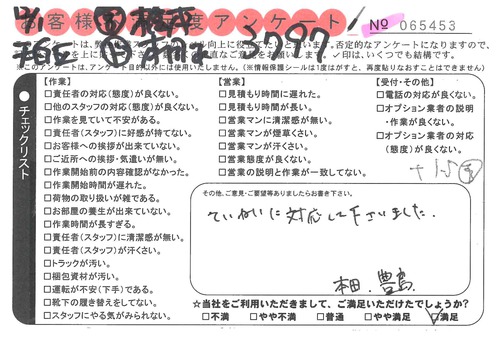 お客様満足度アンケート! № 065453
12/1
3797
※このアンケートは、アンケート目的以外には使用いたしません。(※情報保護シールは1度がすと、再度貼りなおすことはできません)
チェックリスト
【作業】
□責任者の対応(態度)が良くない。
□他のスタッフの対応(態度)が良くない。
□作業を見ていて不安がある。
□責任者(スタッフ)に好感が持てない。
□お客様への挨拶が出来ていない。
□ご近所への挨拶・気遣いが無い。
□作業開始前の内容確認がなかった。
□作業開始時間が遅れた。
□荷物の取り扱いが雑である。
□お部屋の養生が出来ていない。
□作業時間が長すぎる。
□責任者(スタッフ)に清潔感が無い。
□責任者(スタッフ)が汗くさい。
□トラックが汚い。
□梱包資材が汚い。
□運転が不安(下手)である。
□靴下の履き替えをしてない。
□スタッフにやる気がみられない。
【営業】
□見積もり時間に遅れた。
□見積もり時間が長い。
□営業マンに清潔感が無い。
□営業マンが煙草くさい。
□営業マンが汗くさい。
□営業態度が良くない。
□営業の説明と作業が一致してない。
【受付・その他】
□電話の対応が良くない。
□オプション業者の説明・作業が良くない。
□オプション業者の対応(態度)が良くない。
その他、ご意見・ご要望等ありましたらお書き下さい。
ていねいに対応して下さいました。
本田、豊島
☆当社をご利用いただきまして、ご満足いただけたでしょうか?
□不満 □やや不満 □普通 □やや満足 □満足